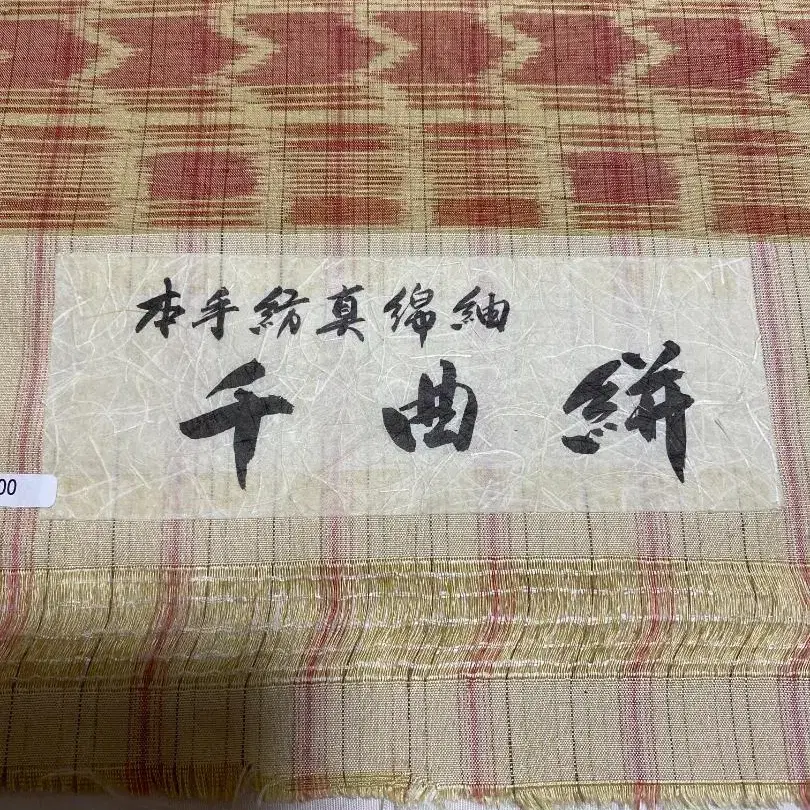 本手紡真綿紬
千曲絣
00